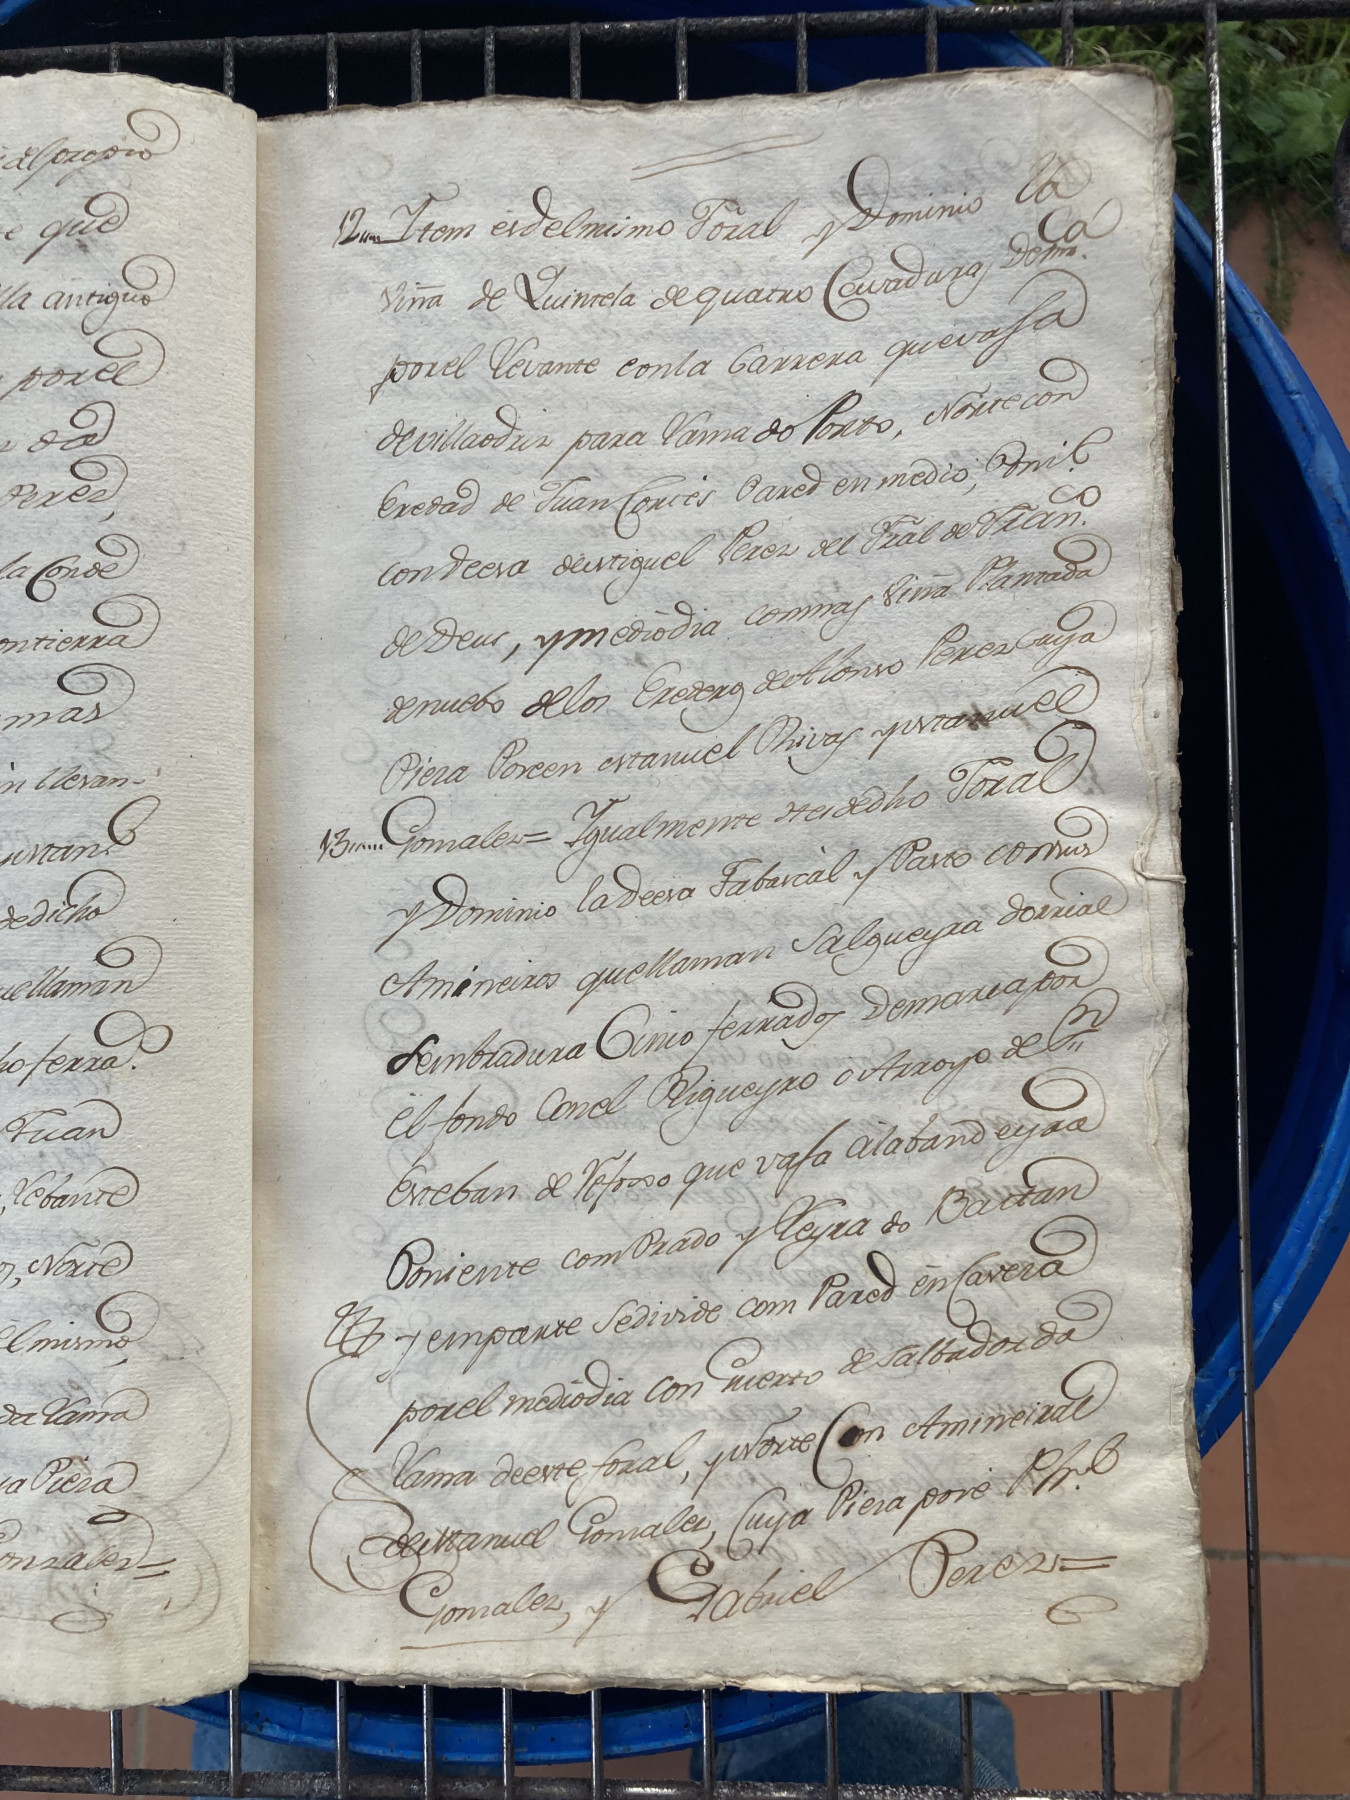 al propio
e que
lla antiguo
por el
da
Perez,
la Conde
con tierra
mas
in llevan
de dicho
que llaman
ho ferra.º
Juan
, Lebante
, Norte
el mismo,
da Lama
ya Piera
Gonzalez=
12.... Item es del mismo Foral y Dominio la
viña de Quintela de quatro Cavaduras Dem.ca
por el Levante con la Carrera que vaja
de villaodriz para Lama do Porto, Norte con
Eredad de Juan Cortés Pared en medio, Pni.e
con Deesa de Miguel Perez del Fral de Fran.co
de Deus, y mediodia con mas viña Plantada
de nuebo de los Erederos de Alonso Perez cuya
Piera Poseen Manuel Rivas y Manuel
13..... Gonzalez= Igualmente es de dho Foral
y Dominio la Deesa Tabascal y Pasto con sus
Amineiros que llaman Salgueyra dorrial
sembradura Cinco ferrados Demarca por
el fondo Con el Rigueyro o Arroyo de Sn
Esteban de que vaja a la bandeyra
Poniente con Prado y Leyra do Bactan
y en parte se divide con Pared en Cavera
por el mediodia con Guerto de Salbador da
Lama de este foral, y Norte Con Amineiral
de Manuel Gonzalez, Cuya Piera poseé Ph.e
Gonzalez, y Gabriel Perez=